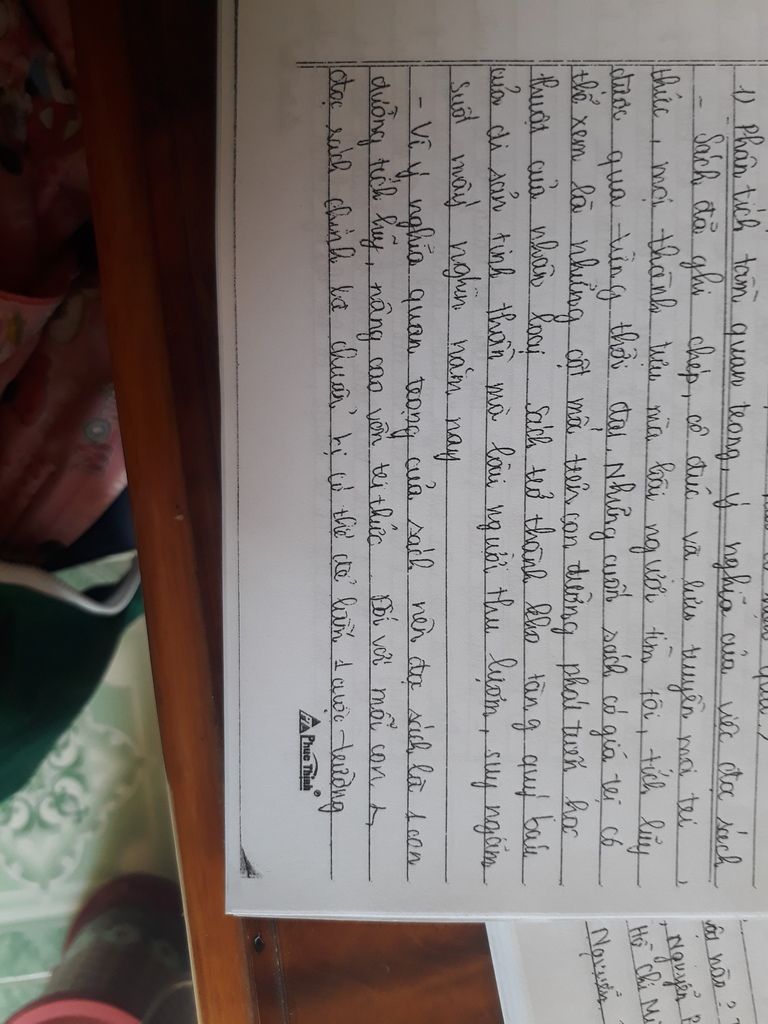 1) Phân tích tầm quan trọng, ý nghĩa của việc đọc sách
- Sách đã ghi chép, cô đúc và lưu truyền mọi tri
thức, mọi thành tựu mà loài người tìm tòi, tích lũy
được qua từng thời đại. Những cuốn sách có giá trị có
thể xem là những cột mốc trên con đường phát triển học
thuật của nhân loại. Sách trở thành kho tàng quý báu
của di sản tinh thần mà loài người thu lượm, suy ngẫm
suốt mấy nghìn năm nay
- Vì ý nghĩa quan trọng của sách nên đọc sách là 1 con
đường tích lũy, nâng cao vốn tri thức. Đối với mỗi con
đọc sách chính là chuẩn bị có thể để làm 1 cuộc trường
Phuc Thinh®
nào?
Nguyễn
Hồ Chí M
Nguyễn